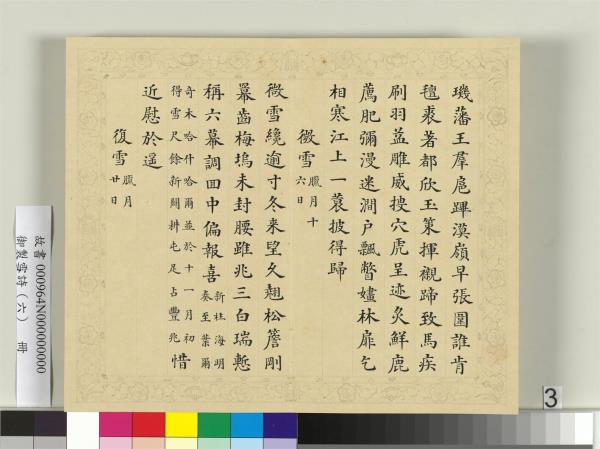 璣藩王羣扈蹕漠嶺早張圍誰肯
氊裘著都欣玉策揮襯蹄致馬疾
刷羽益雕威搜穴虎呈迹炙鮮鹿
薦肥彌漫迷澗户飄瞥爐林扉乞
相寒江上一蓑披得歸
微雪 臘月十六日
微雪纔逾寸冬来望久翹松簷剛
冪齒梅塢未封腰雖兆三白瑞慙
稱六幕調回中偏報喜 新柱海明奏至葉爾
奇木哈什哈爾並於十一月初得雪尺餘新闢耕屯足占豐兆 惜
近慰於遥
復雪 臘月廿日
故書 000964N000000000
御製雪詩（六） 冊
3